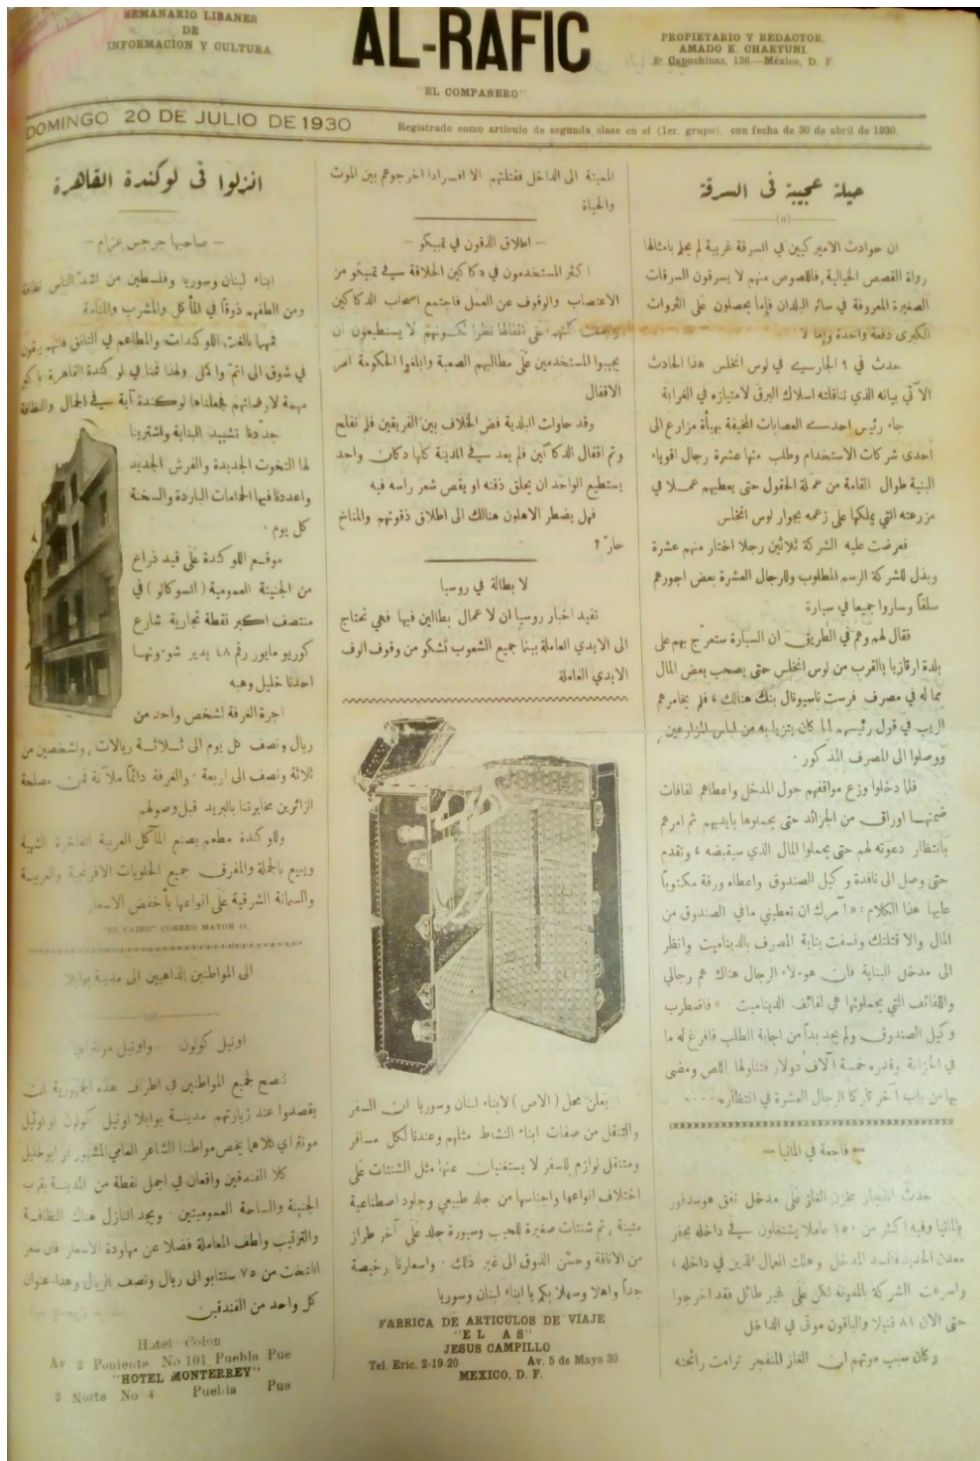 SEMANARIO LIBANES
DE
INFORMACION Y CULTURA
AL-RAFIC
"EL COMPAÑERO"
PROPIETARIO Y REDACTOR
AMADO K. CHARTUNI
8ª Capuchinas, 136.—México, D. F.
DOMINGO 20 DE JULIO DE 1930
Registrado como artículo de segunda clase en el (1er. grupo), con fecha de 30 de abril de 1930.
حيلة عجيبة فى السرقة
ان حوادث الاميركيين في السرقة غريبة لم يحلم بامثالها
رواة القصص الخيالية، فاللصوص منهم لا يسرقون السرقات
الصغيرة المعروفة في سائر البلدان فإما يحصلون على الثروات
الكبرى دفعة واحدة وإما لا
حدث في ٩ الجاري في لوس انجلس هذا الحادث
الآتي بيانه الذي تناقلته اسلاك البرق لامتيازه في الغرابة
جاء رئيس احدى العصابات المخيفة بهيأة مزارع الى
احدى شركات الاستخدام وطلب منها عشرة رجال اقوياء
البنية طوال القامة من عملة الحقول حتى يعطيهم عملا في
مزرعته التي يملكها على زعمه بجوار لوس انجلس
فعرضت عليه الشركة ثلاثين رجلا اختار منهم عشرة
وبذل للشركة الرسم المطلوب وللرجال العشرة بعض اجورهم
سلفًا وساروا جميعا في سيارة
فقال لهم وهم في الطريق ان السيارة ستعرّج بهم على
بلدة ارقازيا بالقرب من لوس انجلس حتى يصحب بعض المال
مما له في مصرف فرست ناسيونال بنك هنالك، فلم يخامرهم
الريب في قول رئيسهم لما كان يتزيا به من لباس المزارعين
ووصلوا الى المصرف المذكور.
فلما دخلوا وزع مواقفهم حول المدخل واعطاهم لفافات
ضمنها اوراق من الجرائد حتى يحملوها بايديهم ثم امرهم
بانتظار دعوته لهم حتى يحملوا المال الذي سيقبضه، وتقدم
حتى وصل الى نافذة وكيل الصندوق واعطاه ورقة مكتوبًا
عليها هذا الكلام: «آمرك ان تعطيني ما في الصندوق من
المال والا قتلتك ونسفت بناية المصرف بالديناميت وانظر
الى مدخل البناية فان هوءلاء الرجال هناك هم رجالي
واللفائف التي يحملونها هي لفائف الديناميت» فاضطرب
وكيل الصندوق ولم يجد بدًا من اجابة الطلب فافرغ له ما
في الخزانة وقدره خمسة آلاف دولار فتناولها اللص ومضى
بها من باب آخر تاركا الرجال العشرة في انتظاره....
— فاجعة في المانيا —
حدث انفجار بخزن الغاز على مدخل نفق هوسدفور
بالمانيا وفيه اكثر من ١٥٠ عاملا يشتغلون في داخله بحفر
معدن الحديد فانسد المدخل وهلك العمال الذين في داخله،
واسرعت الشركة بالمعونة لكن على غير طائل فقد اخرجوا
حتى الان ٨١ قتيلا والباقون موتى في الداخل
وكان سبب موتهم ان الغاز المنفجر ترامت رائحته
المميتة الى الداخل فقتلتهم الا افرادا اخرجوهم بين الموت
والحياة
— اطلاق الذقون في تمبيكو —
اكثر المستخدمون في دكاكين الحلاقة في تمبيكو من
الاعتصاب والوقوف عن العمل فاجتمع اصحاب الدكاكين
على اقفالها نظرا لكونهم لا يستطيعون ان
يجيبوا المستخدمين على مطاليبهم الصعبة وابلغوا الحكومة امر
الاقفال
وقد حاولت البلدية فض الخلاف بين الفريقين فلم تفلح
وتم اقفال الدكاكين فلم يعد في المدينة كلها دكان واحد
يستطيع الواحد ان يحلق ذقنه او يقص شعر راسه فيه
فهل يضطر الاهلون هنالك الى اطلاق ذقونهم والمناخ
حارّ؟
لا بطالة في روسيا
تفيد اخبار روسيا ان لا عمال بطالين فيها فهي تحتاج
الى الايدي العاملة بينما جميع الشعوب تشكو من وقوف الوف
الايدي العاملة
يعلن محل (الاص) لابناء لبنان وسوريا ان السفر
والتنقل من صفات ابناء النشاط مثلهم وعندنا لكل مسافر
ومتنقل لوازم للسفر لا يستغنيان عنها مثل الشنتات على
اختلاف انواعها واجناسها من جلد طبيعي وجلود اصطناعية
متينة، ثم شنتات صغيرة للجيب وسيورة جلد على آخر طراز
من الاناقة وحسن الذوق الى غير ذلك. واسعارنا رخيصة
جدًا واهلا وسهلا بكم يا ابناء لبنان وسوريا
FABRICA DE ARTICULOS DE VIAJE
"EL AS"
JESUS CAMPILLO
Tel. Eric. 2-19-20 Av. 5 de Mayo 30
MEXICO, D. F.
انزلوا فى لوكندة القاهرة
— صاحبها جرجس عزام —
ابناء لبنان وسوريا وفلسطين من اشدّ الناس نظافة
ومن الطفهم ذوقًا في المأكل والمشرب والمنامة
فمهما بالغت اللوكندات والمطاعم في التانق فانهم يبقون
في شوق الى اتمّ واكمل ولهذا قمنا في لوكندة القاهرة باكبر
مهمة لارضائهم فجعلناها لوكندة آية في الجمال والنظافة
جدّدنا تشييد البناية واشترينا
لها التخوت الجديدة والفرش الجديد
واعددنا فيها الحمامات الباردة والسخنة
كل يوم.
موقع اللوكندة على قيد ذراع
من الجنينة العمومية (السوكالو) في
منتصف اكبر نقطة تجارية شارع
كوريو مايور رقم ٤٨ يدير شوءونها
احدنا خليل وهبه
اجرة الغرفة لشخص واحد من
ريال ونصف كل يوم الى ثلاثة ريالات، ولشخصين من
ثلاثة ونصف الى اربعة. والغرفة دائمًا ملآنة فمن مصلحة
الزائرين مخابرتنا بالبريد قبل وصولهم
وللوكندة مطعم يصنع المآكل العربية الفاخرة الشهية
ويبيع بالجملة والمفرق جميع الحلويات الافرنجية والعربية
والسمانة الشرقية على انواعها باخفض الاسعار
"EL CAIRO" CORREO MAYOR
الى المواطنين الذاهبين الى مدينة بوابلا
اوتيل كولون واوتيل مونتراي
ننصح لجميع المواطنين في اطراف هذه الجمهورية ان
يقصدوا عند زيارتهم مدينة بوابلا اوتيل كولون او اوتيل
مونتراي كلاهما يخص مواطننا الشاعر العامي المشهور ابو خليل
كلا الفندقين واقعان في اجمل نقطة من المدينة بقرب
الجنينة والساحة العموميتين. ويجد النازل هناك النظافة
والترتيب ولطف المعاملة فضلا عن مهاودة الاسعار فان سعر
التخت من ٧٥ سنتابو الى ريال ونصف الريال وهذا عنوان
كل واحد من الفندقين
Hotel Colon
Av 2 Poniente No 101 Puebla Pue
"HOTEL MONTERREY"
2 Norte No 4 Puebla Pue